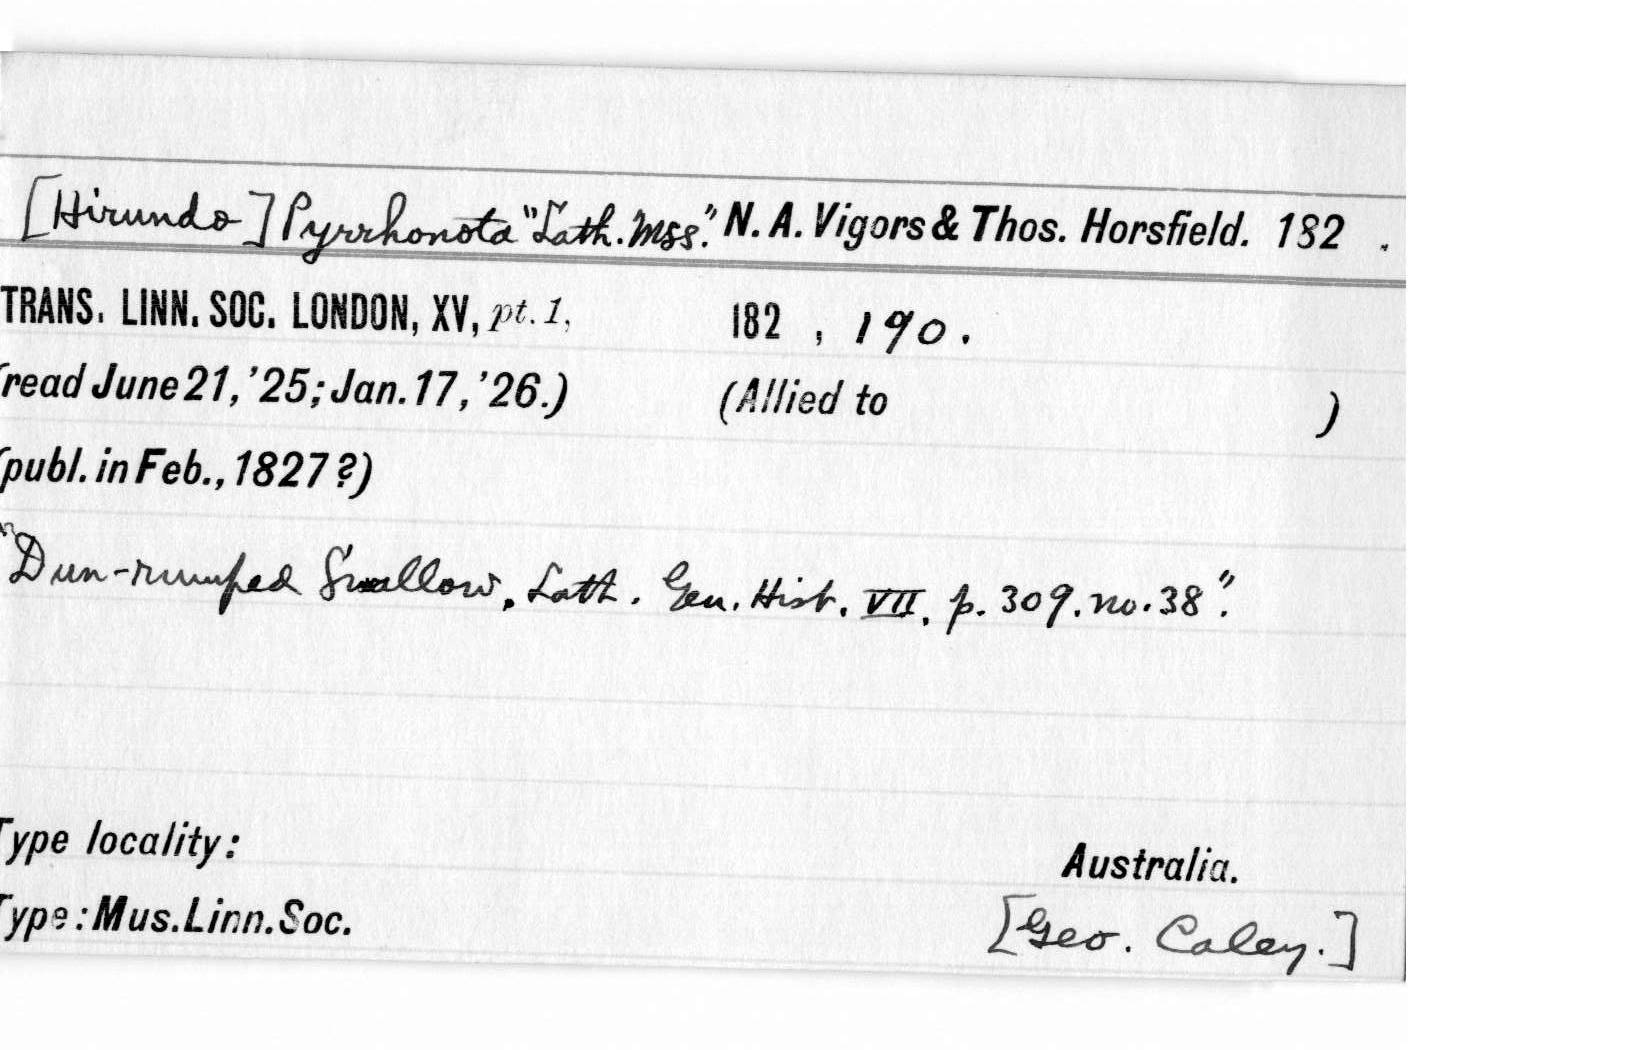 [Hirundo] Pyrrhonota "Lath. Mss." N. A. Vigors & Thos. Horsfield. 182 .
TRANS. LINN. SOC. LONDON, XV, pt. 1, 182 , 190.
(read June 21, '25; Jan. 17, '26.) (Allied to )
(publ. in Feb., 1827?)
"Dun-rumped Swallow, Lath. Gen. Hist. VII. p. 309. no. 38".
Type locality: Australia.
Type: Mus. Linn. Soc. [Geo. Caley.]